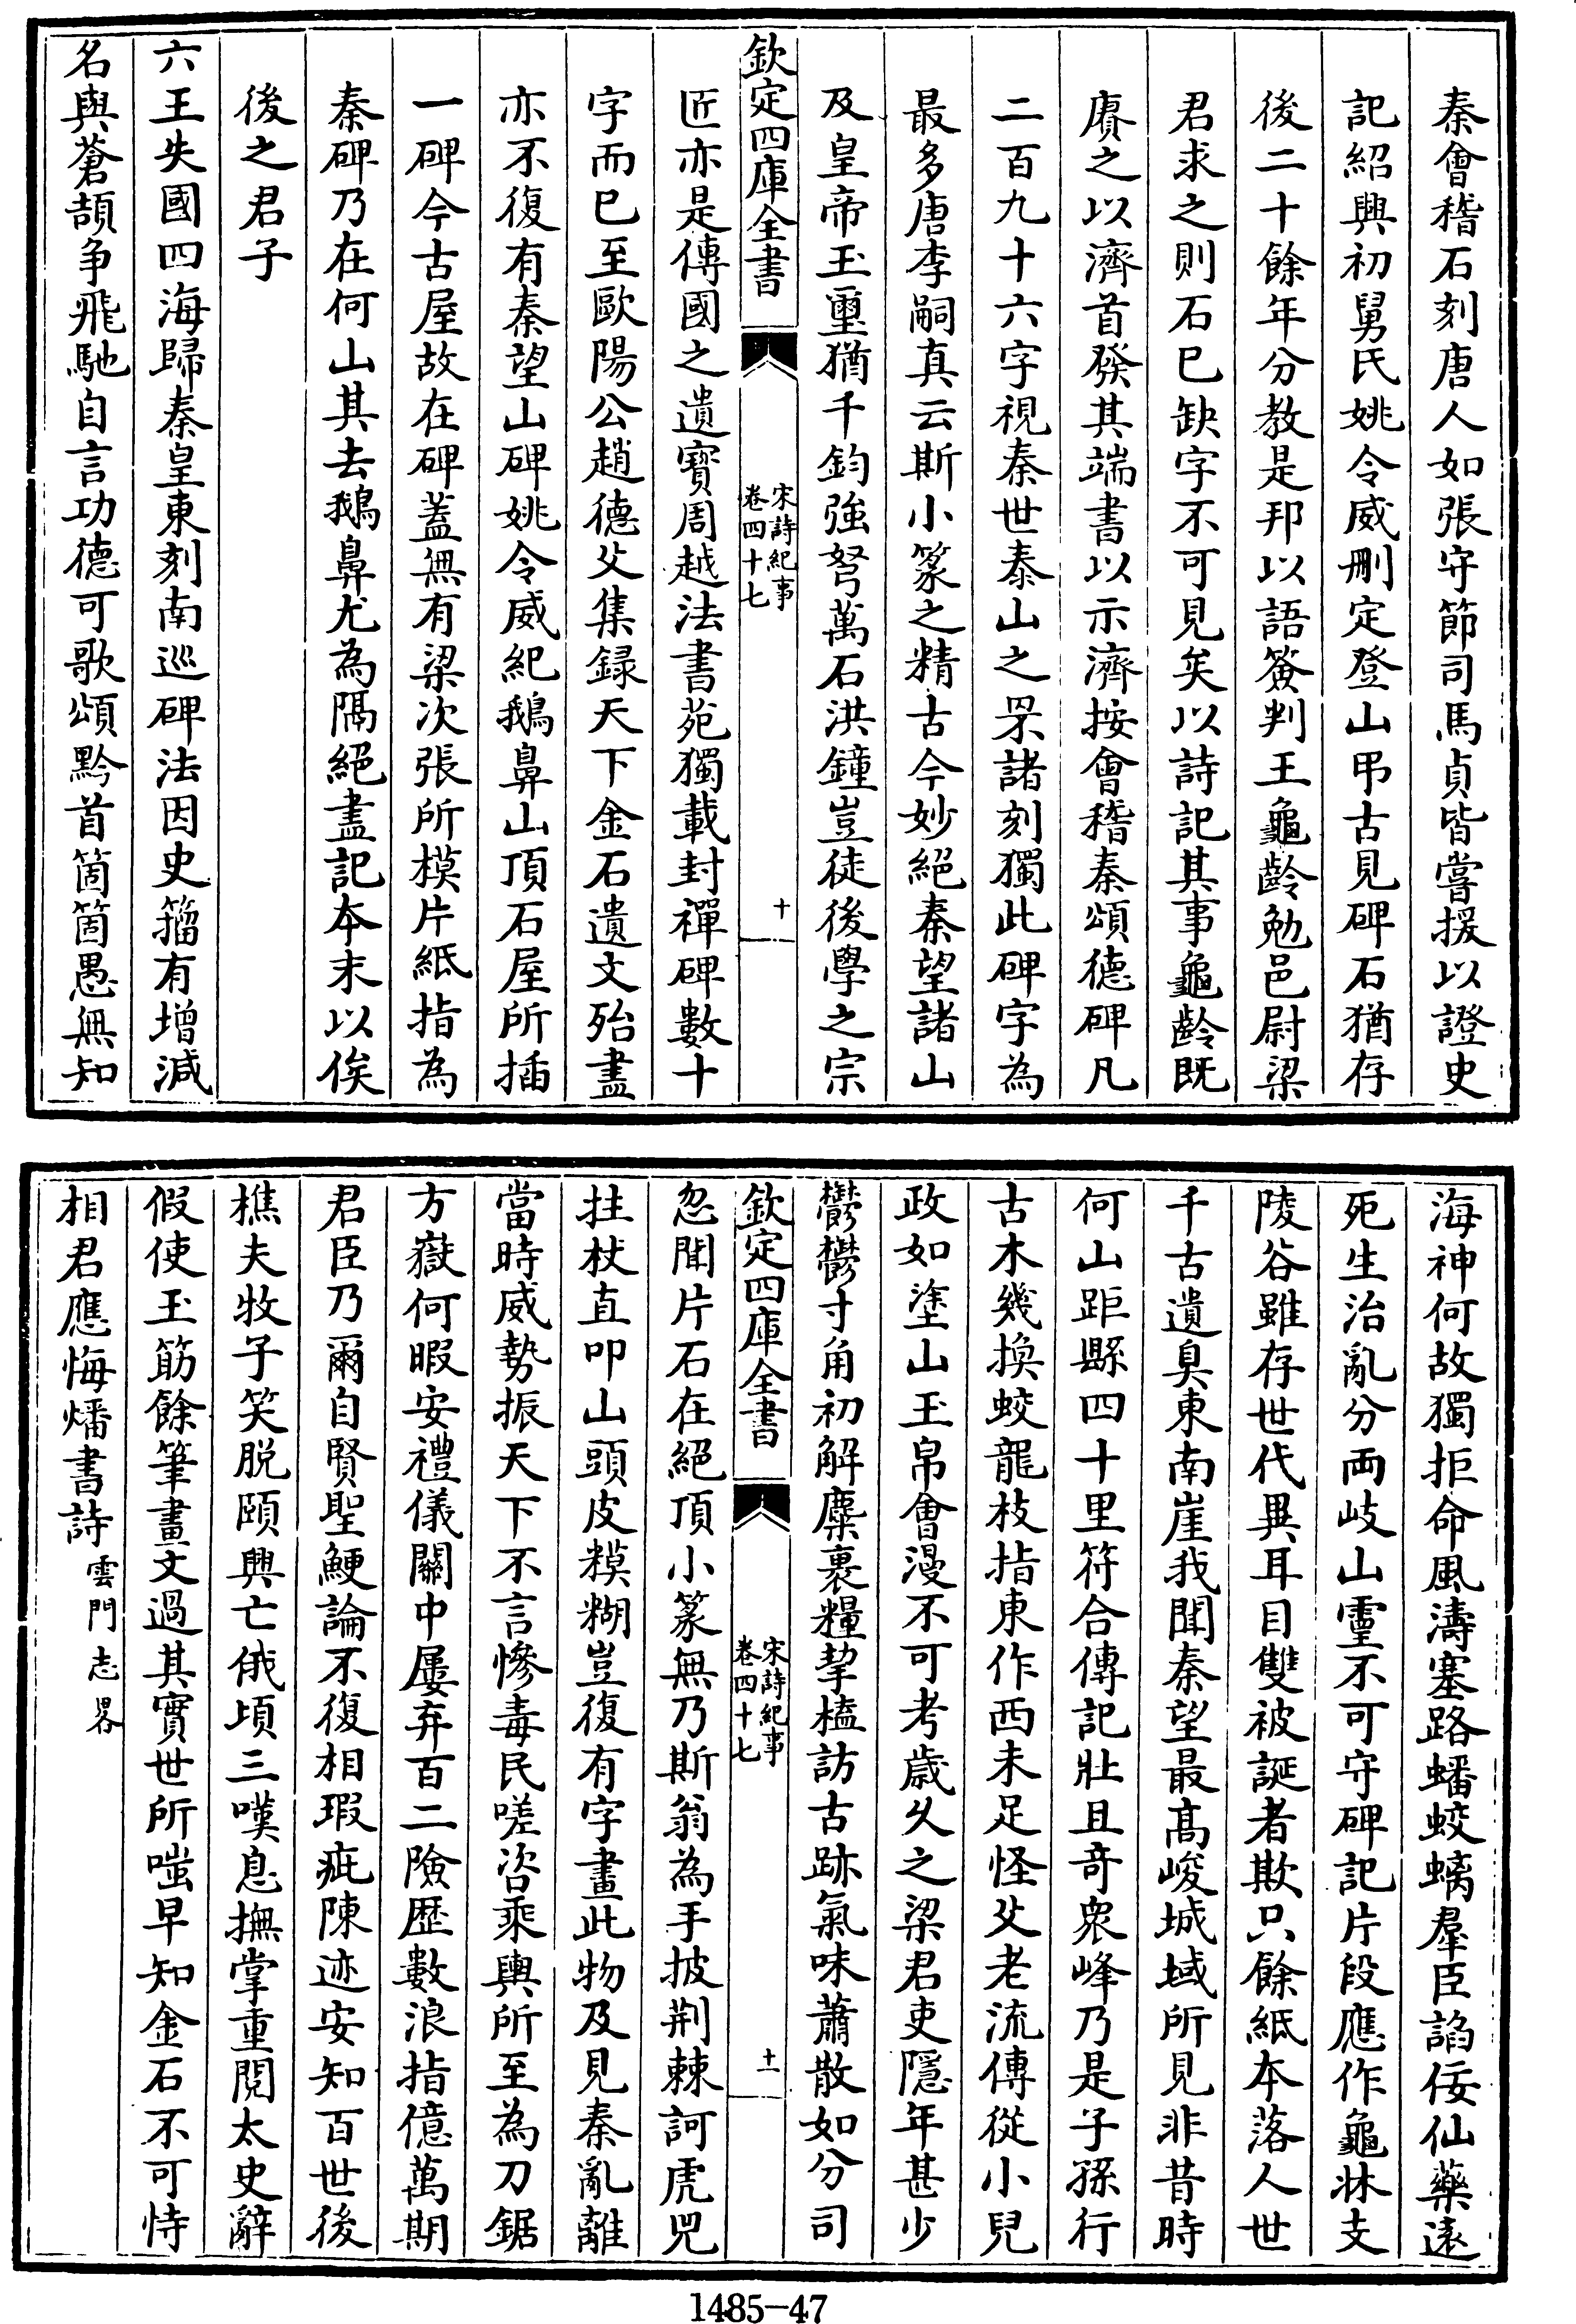 秦會稽石刻唐人如張守節司馬貞皆嘗援以證史
記紹興初舅氏姚令威刪定登山弔古見碑石猶存
後二十餘年分教是邦以語簽判王龜齡勉邑尉梁
君求之則石已缺字不可見矣以詩記其事龜齡既
賡之以濟首發其端書以示濟按會稽秦頌德碑凡
二百九十六字視秦世泰山之罘諸刻獨此碑字為
最多唐李嗣真云斯小篆之精古今妙絕秦望諸山
及皇帝玉璽猶千鈞強弩萬石洪鐘豈徒後學之宗
欽定四庫全書
宋詩紀事
卷四十七
十
匠亦是傳國之遺寶周越法書苑獨載封禪碑數十
字而已至歐陽公趙德父集録天下金石遺文殆盡
亦不復有秦望山碑姚令威紀鵝鼻山頂石屋所插
一碑今古屋故在碑蓋無有梁次張所模片紙指為
秦碑乃在何山其去鵝鼻尤為隔絕盡記本末以俟
後之君子
六王失國四海歸秦皇東刻南巡碑法因史籀有增減
名與蒼頡争飛馳自言功德可歌頌黔首箇箇愚無知
海神何故獨拒命風濤塞路蟠蛟螭羣臣諂佞仙藥遠
死生治亂分両岐山靈不可守碑記片段應作龜牀支
陵谷雖存世代異耳目雙被誕者欺只餘紙本落人世
千古遺臭東南崖我聞秦望最髙峻城域所見非昔時
何山距縣四十里符合傳記壯且奇衆峰乃是子孫行
古木幾換蛟龍枝指東作西未足怪父老流傳從小兒
政如塗山玉帛會漫不可考歲久之梁君吏隱年甚少
鬱鬱寸角初解麋裹糧挈榼訪古跡氣味蕭散如分司
欽定四庫全書
宋詩紀事
卷四十七
十一
忽聞片石在絕頂小篆無乃斯翁為手披荆棘訶虎兕
拄杖直叩山頭皮糢糊豈復有字畫此物及見秦亂離
當時威勢振天下不言慘毒民嗟咨乘輿所至為刀鋸
方嶽何暇安禮儀關中屢弃百二險歴數浪指億萬期
君臣乃爾自賢聖鯁論不復相瑕疵陳迹安知百世後
樵夫牧子笑脱頤興亡俄頃三嘆息撫掌重閱太史辭
假使玉筯餘筆畫文過其實世所嗤早知金石不可恃
相君應悔燔書詩 雲門志畧
1485-47